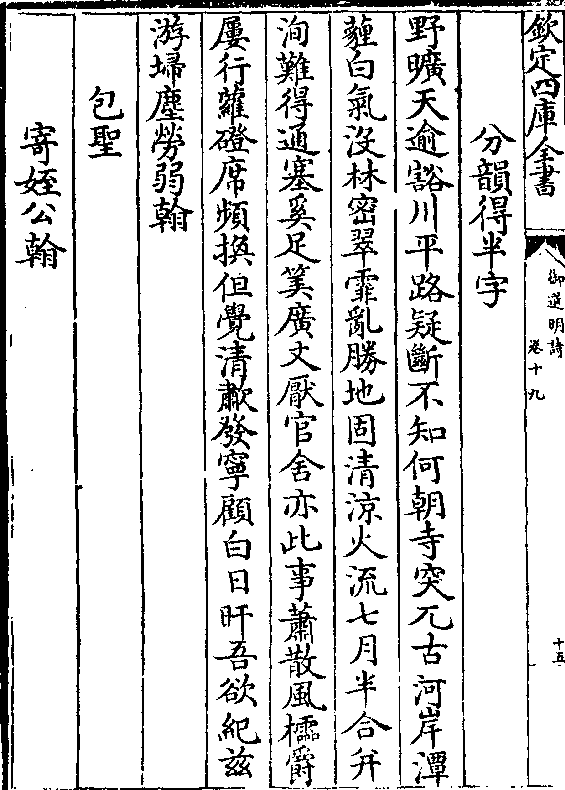 欽定四庫全書
御選明詩
卷十九
十五
分韻得半字
野曠天逾豁川平路疑斷不知何朝寺突兀古河岸潭
蘿白氣沒林密翠霏亂勝地固清涼火流七月半合并
洵難得通塞奚足筭廣文厭官舍亦此事蕭散風櫺爵
屢行蘿磴席頻換但覺清歗發寧顧白日旰吾欲紀兹
游埽塵勞弱翰
包聖
寄姪公翰